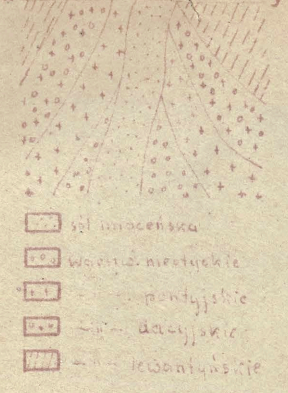 sól mioceńska
warstwy meotyckie
-"- pontyjskie
-"- dacyjskie
-"- lewantyńskie